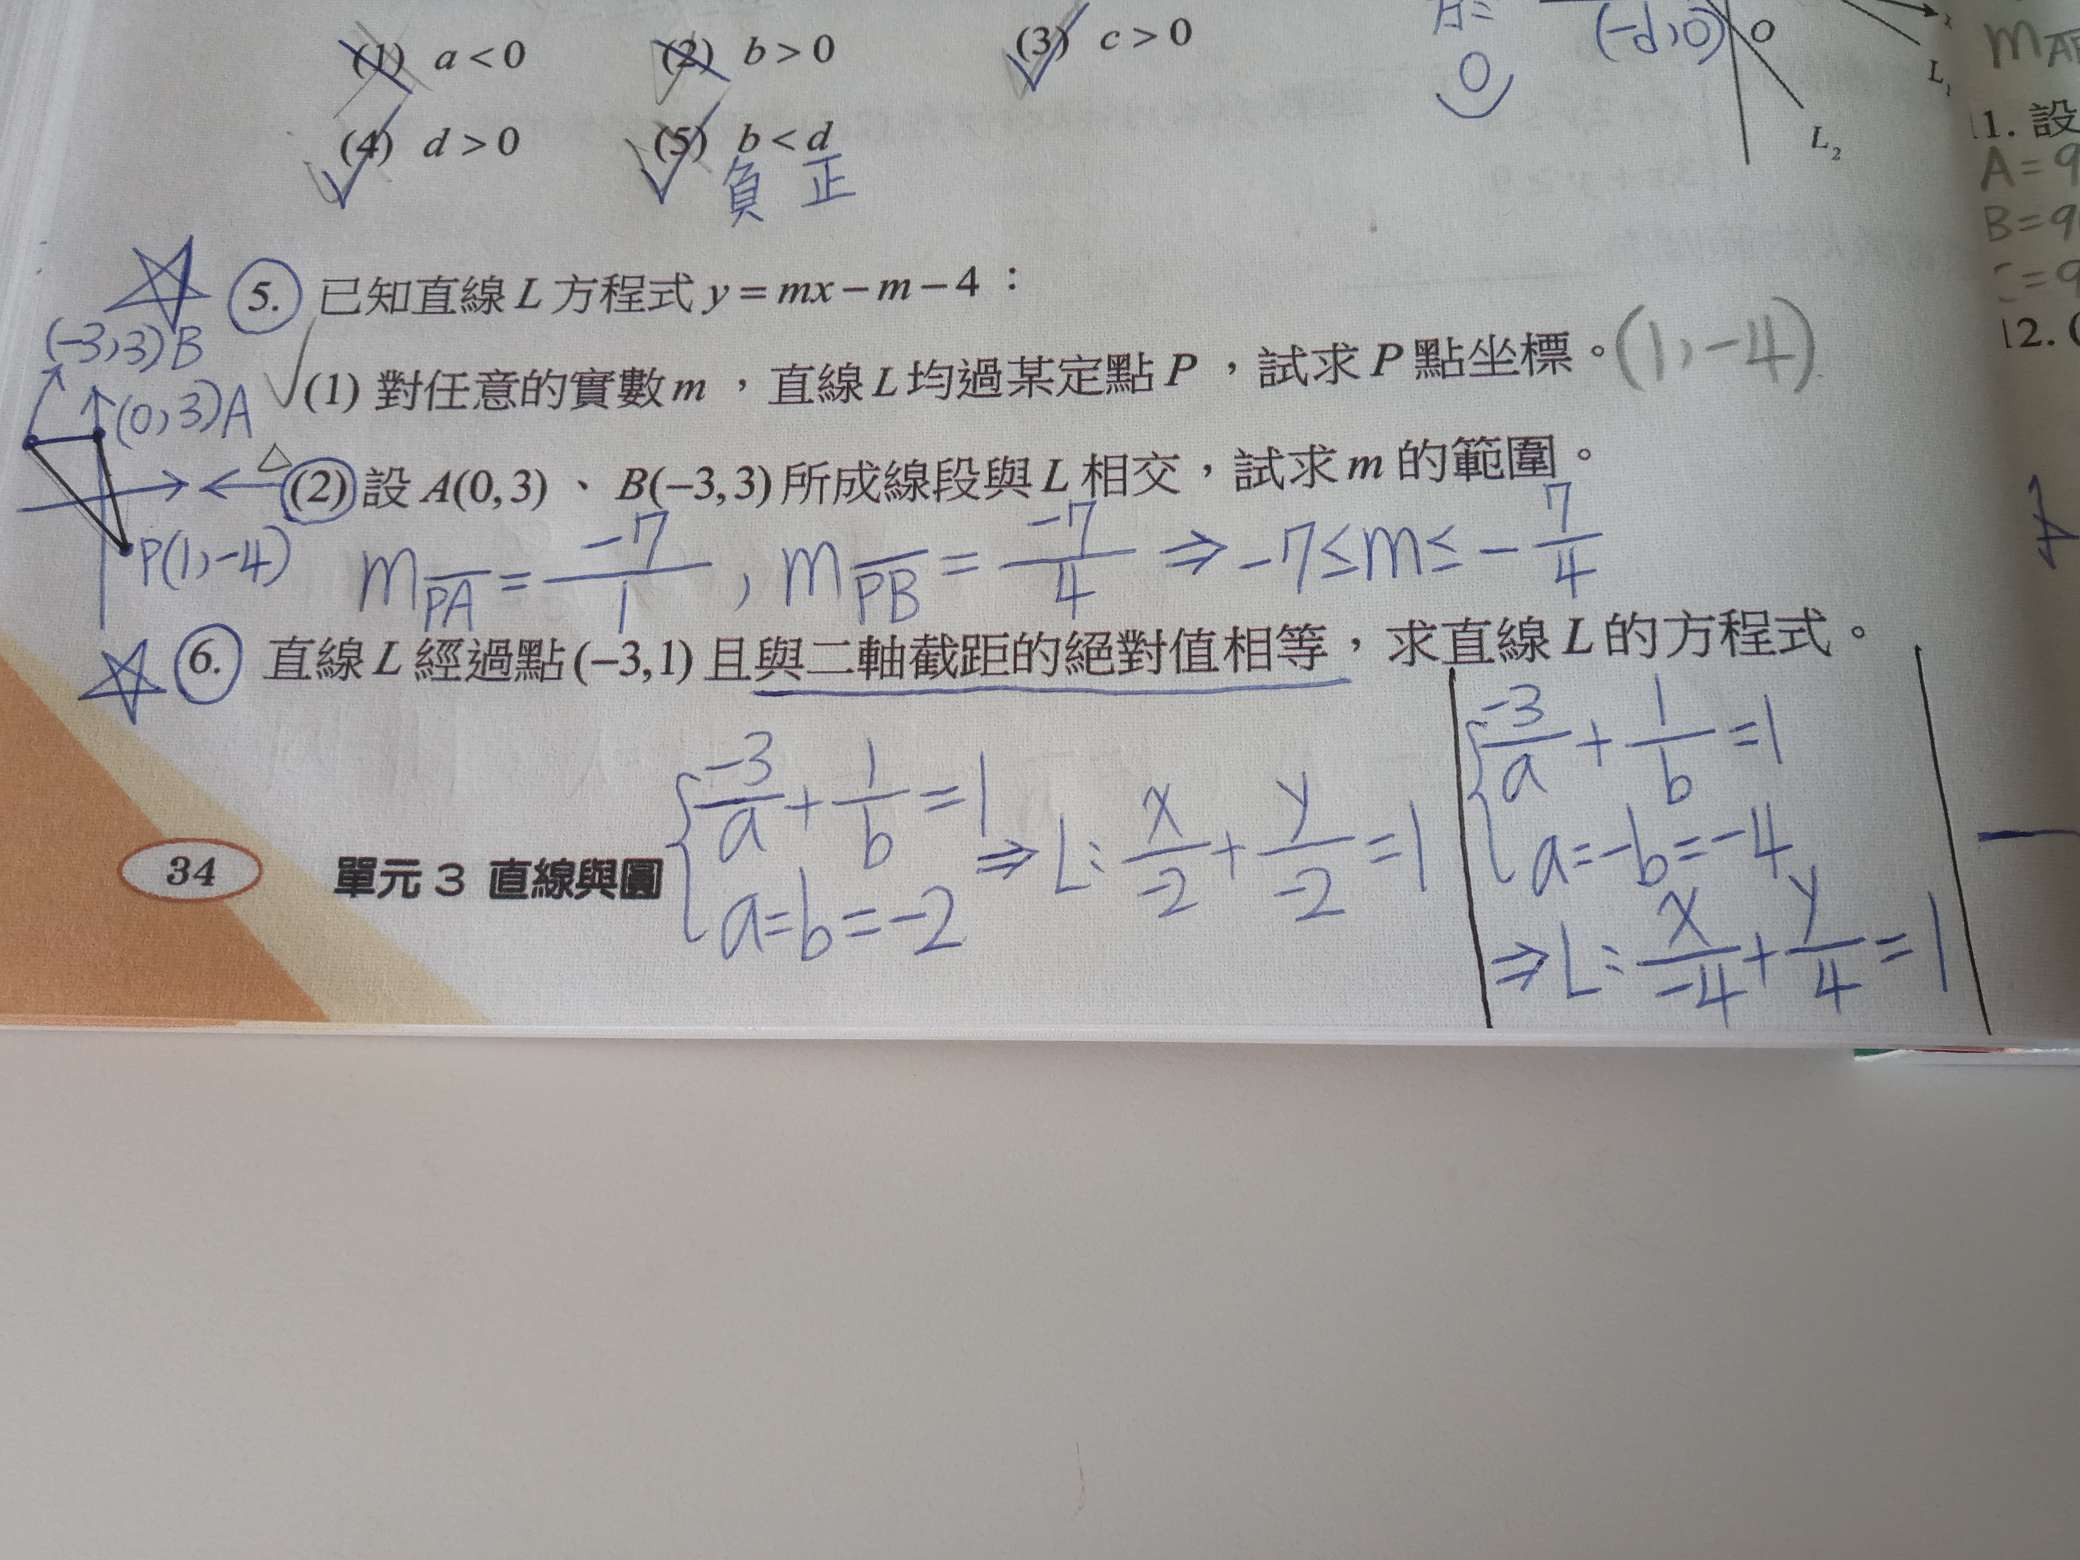 (1) a < 0 (2) b > 0 (3) c > 0
(-d,0) O
L₁
L₂
(4) d > 0 (5) b < d
負 正
5. 已知直線 L 方程式 y = mx − m − 4：
(1) 對任意的實數 m ，直線 L 均過某定點 P ，試求 P 點坐標。(1,-4)
(2) 設 A(0,3) 、 B(−3,3) 所成線段與 L 相交，試求 m 的範圍。
(-3,3)B
(0,3)A
P(1,-4)
m_PA = -7/1 , m_PB = -7/4 ⇒ -7≤m≤ -7/4
6. 直線 L 經過點 (−3,1) 且與二軸截距的絕對值相等，求直線 L 的方程式。
-3/a + 1/b = 1
a=b=-2
⇒ L: x/-2 + y/-2 = 1
-3/a + 1/b = 1
a=-b=-4
⇒ L: x/-4 + y/4 = 1
34 單元 3 直線與圓
11. 設
A=9
B=9
C=9
12. (